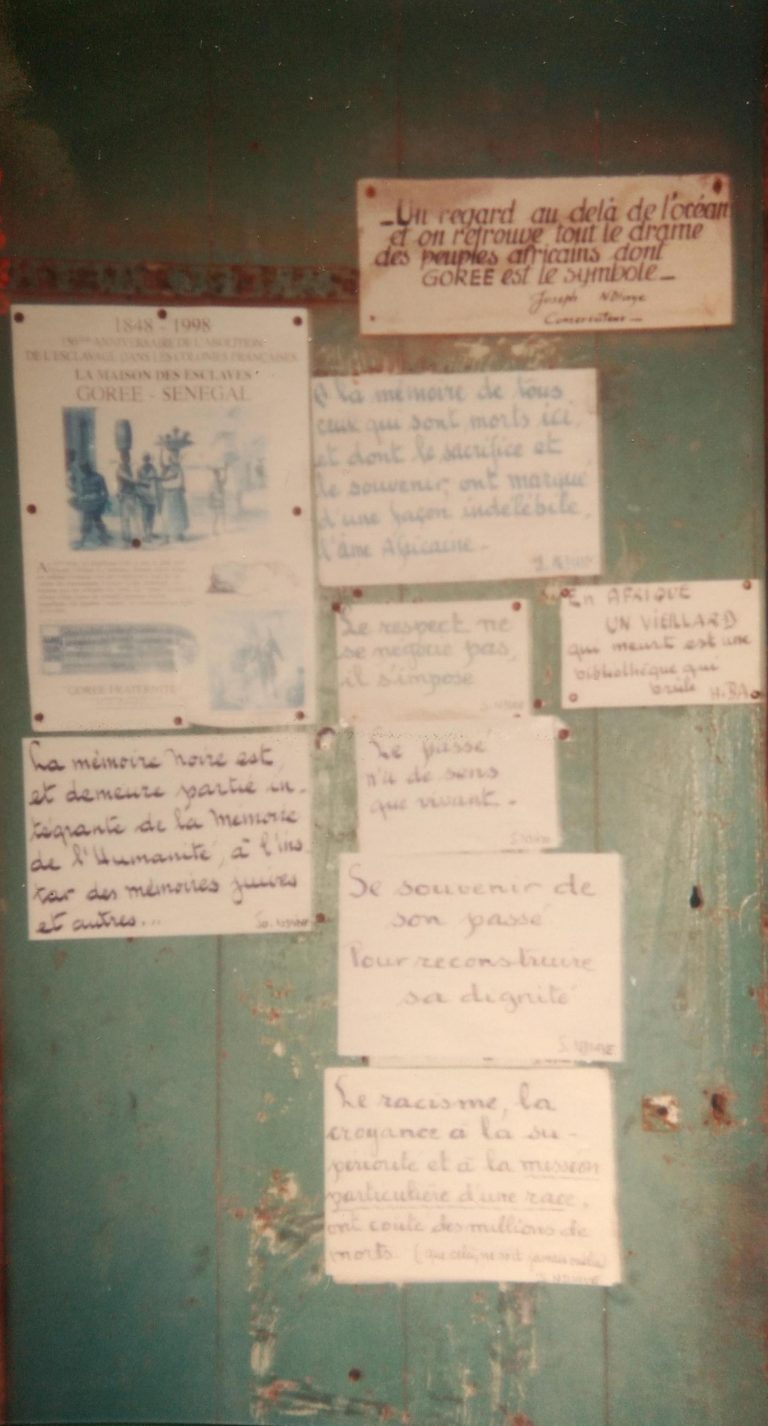 Un regard au delà de l'océan
et on retrouve tout le drame
des peuples africains dont
GOREE est le symbole
Joseph NDiaye
Conservateur
1848 - 1998
150ème ANNIVERSAIRE DE L'ABOLITION
DE L'ESCLAVAGE DANS LES COLONIES FRANÇAISES
LA MAISON DES ESCLAVES
GOREE - SENEGAL
GOREE FRATERNITE
A la mémoire de tous
ceux qui sont morts ici,
et dont le sacrifice et
le souvenir, ont marqué
d'une façon indélébile,
l'âme Africaine.
J. NDIAYE
Le respect ne
se négocie pas,
il s'impose
J. NDIAYE
En AFRIQUE
UN VIEILLARD
qui meurt est une
bibliothèque qui
brûle H. BA
La mémoire noire est,
et demeure partie in-
tégrante de la Mémoire
de l'Humanité, à l'ins
tar des mémoires juives
et autres...
Jo. NDIAYE
Le passé
n'a de sens
que vivant.
J. NDIAYE
Se souvenir de
son passé
Pour reconstruire
sa dignité
J. NDIAYE
Le racisme, la
croyance à la su-
périorité et à la mission
particulière d'une race,
ont coûté des millions de
morts. (que cela ne soit jamais oublié)
J. NDIAYE